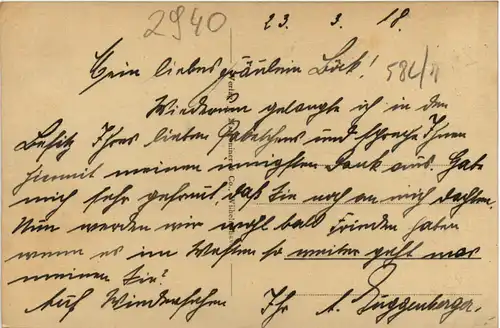 2940
23. 3. 18.
584/11
Mein liebes Fräulein Böck!
Wiederum gelangte ich in den
Besitz Ihres lieben Paketchens und spreche Ihnen
hiermit meinen innigsten Dank aus. Habe
mich sehr gefreut, daß Sie noch an mich dachten.
Nun werden wir wohl bald Frieden haben
wenn es im Westen so weiter geht was
meinen Sie?
Auf Wiedersehen Ihr A. Guggenberger.